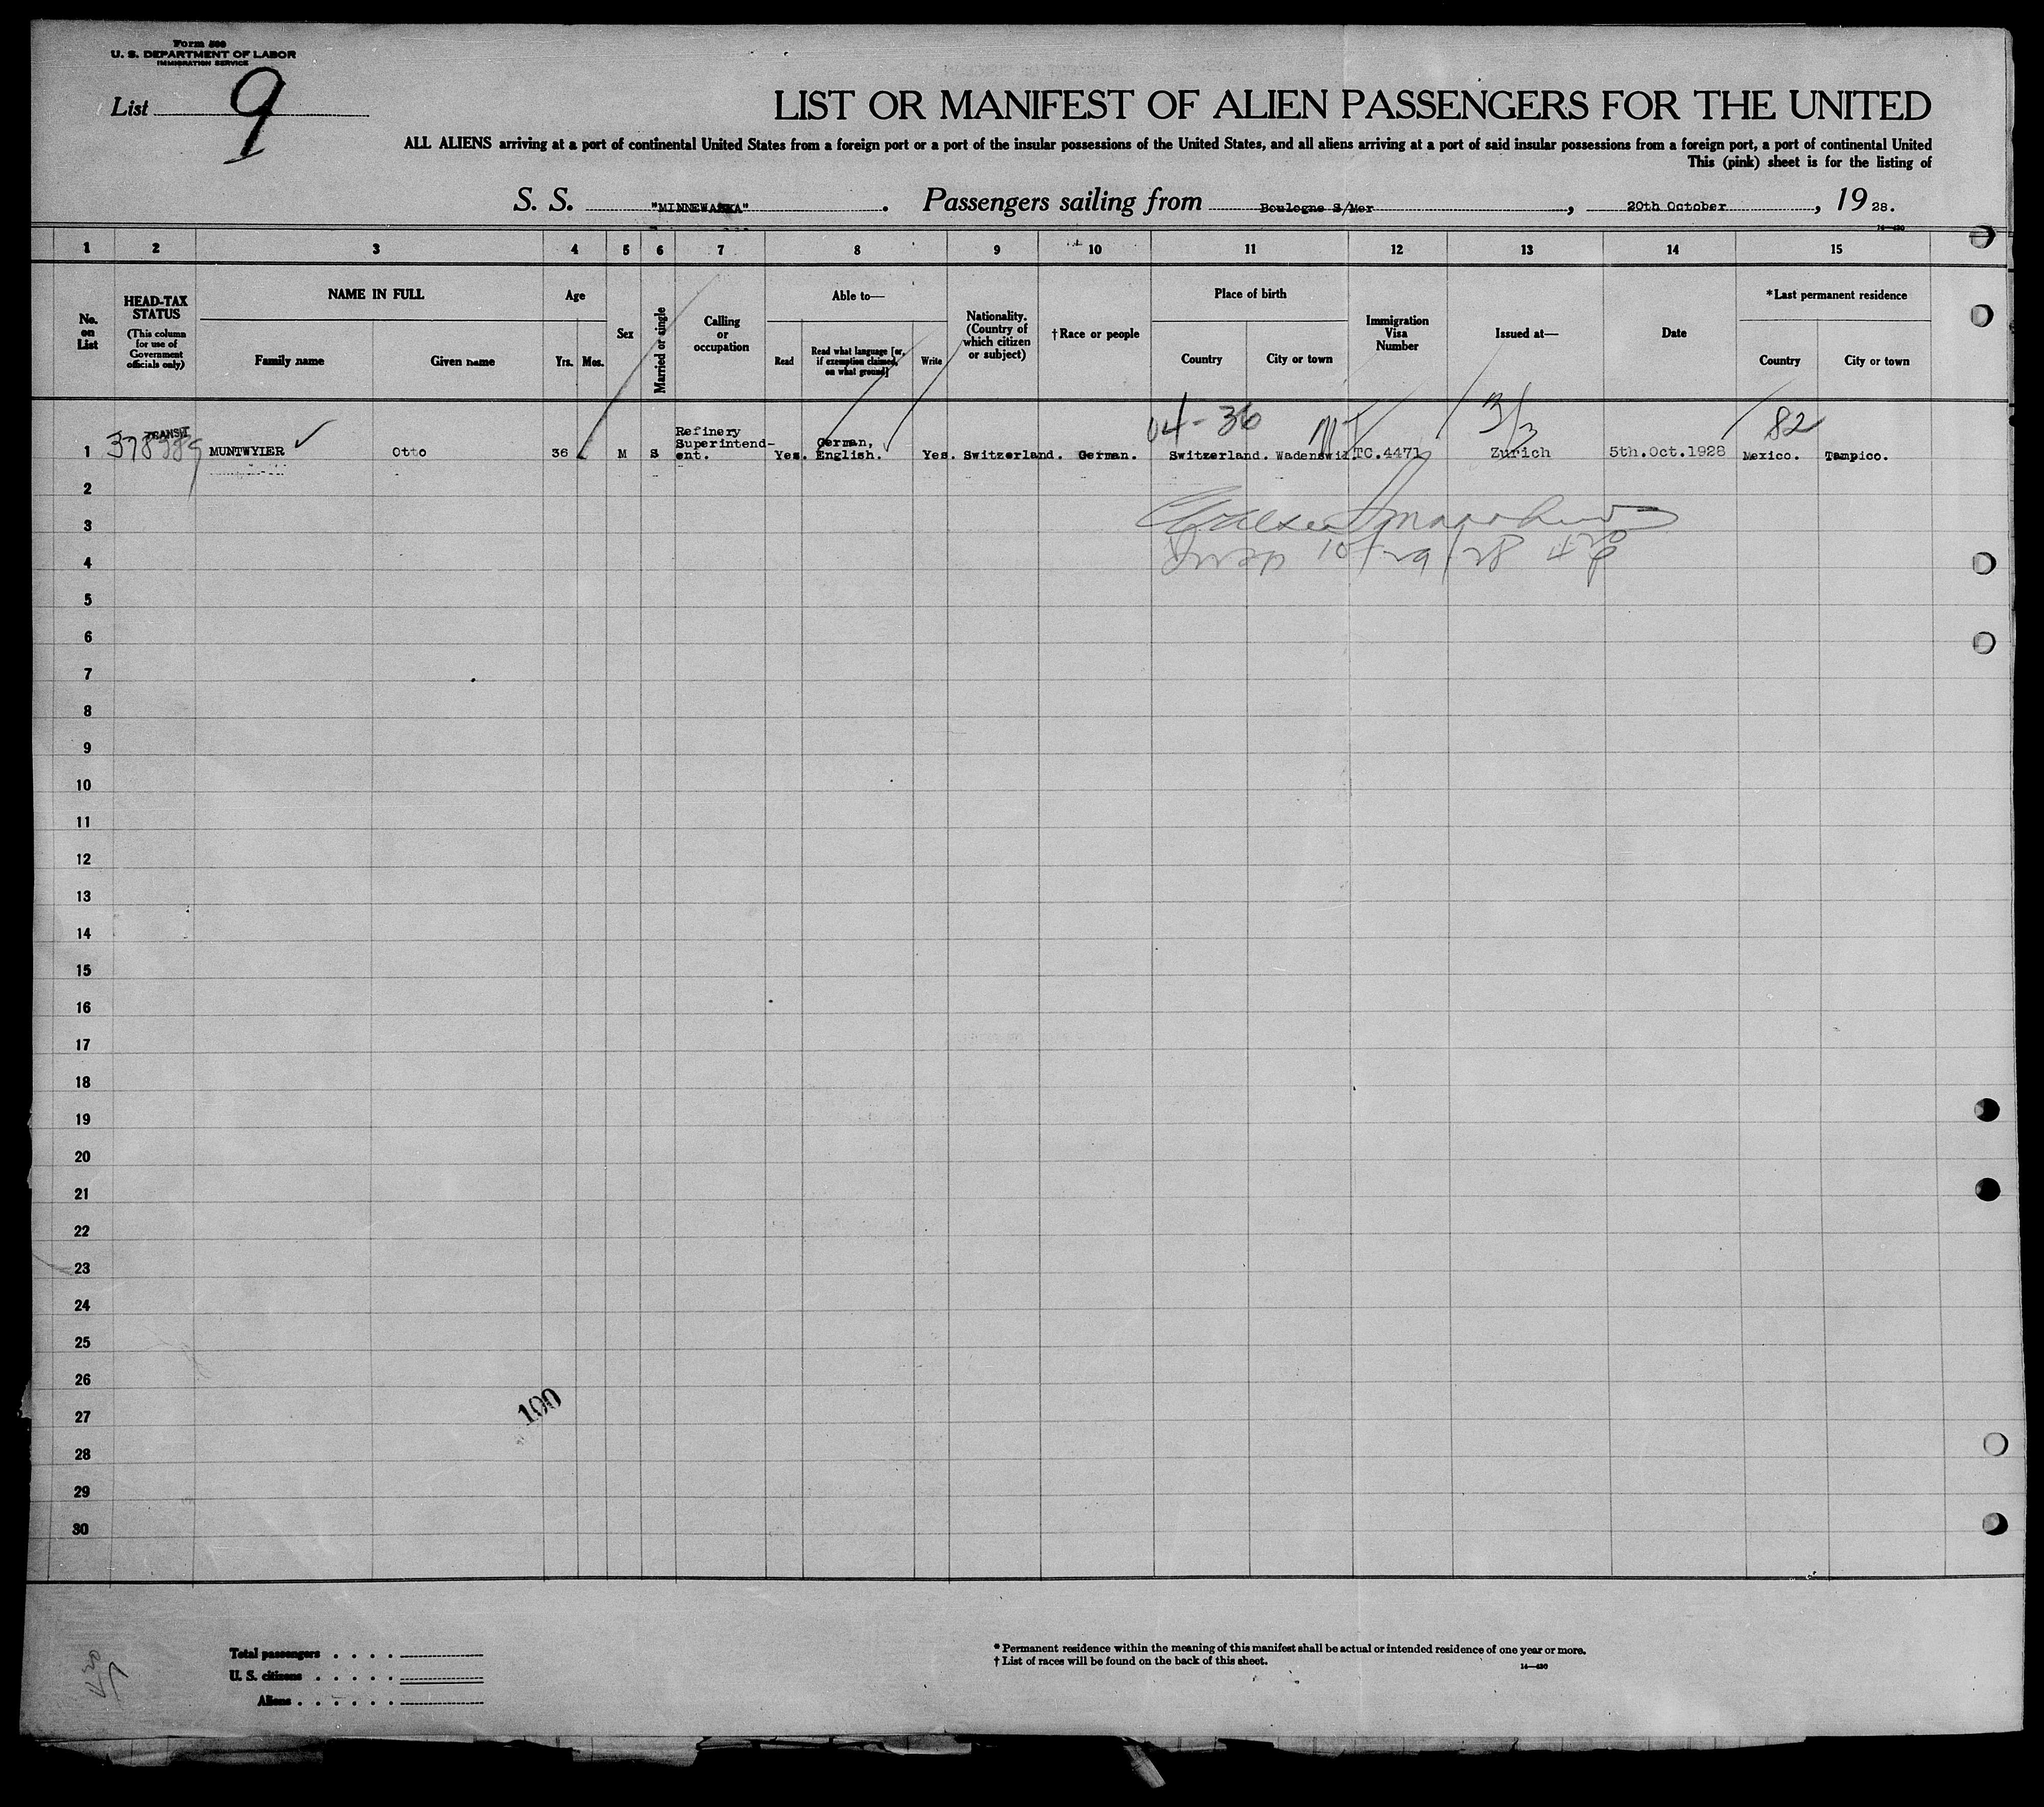 Form 500
U. S. DEPARTMENT OF LABOR
IMMIGRATION SERVICE
List 9
LIST OR MANIFEST OF ALIEN PASSENGERS FOR THE UNITED
ALL ALIENS arriving at a port of continental United States from a foreign port or a port of the insular possessions of the United States, and all aliens arriving at a port of said insular possessions from a foreign port, a port of continental United
This (pink) sheet is for the listing of
S. S. "MINNEWASKA". Passengers sailing from Boulogne S/Mer, 20th October, 1928.
14—430
1 2 3 4 5 6 7 8 9 10 11 12 13 14 15
No. on List
HEAD-TAX STATUS
(This column for use of Government officials only)
NAME IN FULL
Family name
Given name
Age
Yrs. Mos.
Sex
Married or single
Calling or occupation
Able to—
Read
Read what language [or, if exemption claimed, on what ground]
Write
Nationality. (Country of which citizen or subject)
†Race or people
Place of birth
Country
City or town
Immigration Visa Number
Issued at—
Date
*Last permanent residence
Country
City or town
04-36 3/3 82
1 TRANSIT MUNTWYIER Otto 36 M S Refinery Superintend-ent. Yes. German, English. Yes. Switzerland. German. Switzerland. Wadenswil. TC.4471 Zurich 5th.Oct.1928 Mexico. Tampico.
2
3
4
10/29/28
5
6
7
8
9
10
11
12
13
14
15
16
17
18
19
20
21
22
23
24
25
26
27
100
28
29
30
Total passengers
U. S. citizens
Aliens
* Permanent residence within the meaning of this manifest shall be actual or intended residence of one year or more.
† List of races will be found on the back of this sheet.
14—430